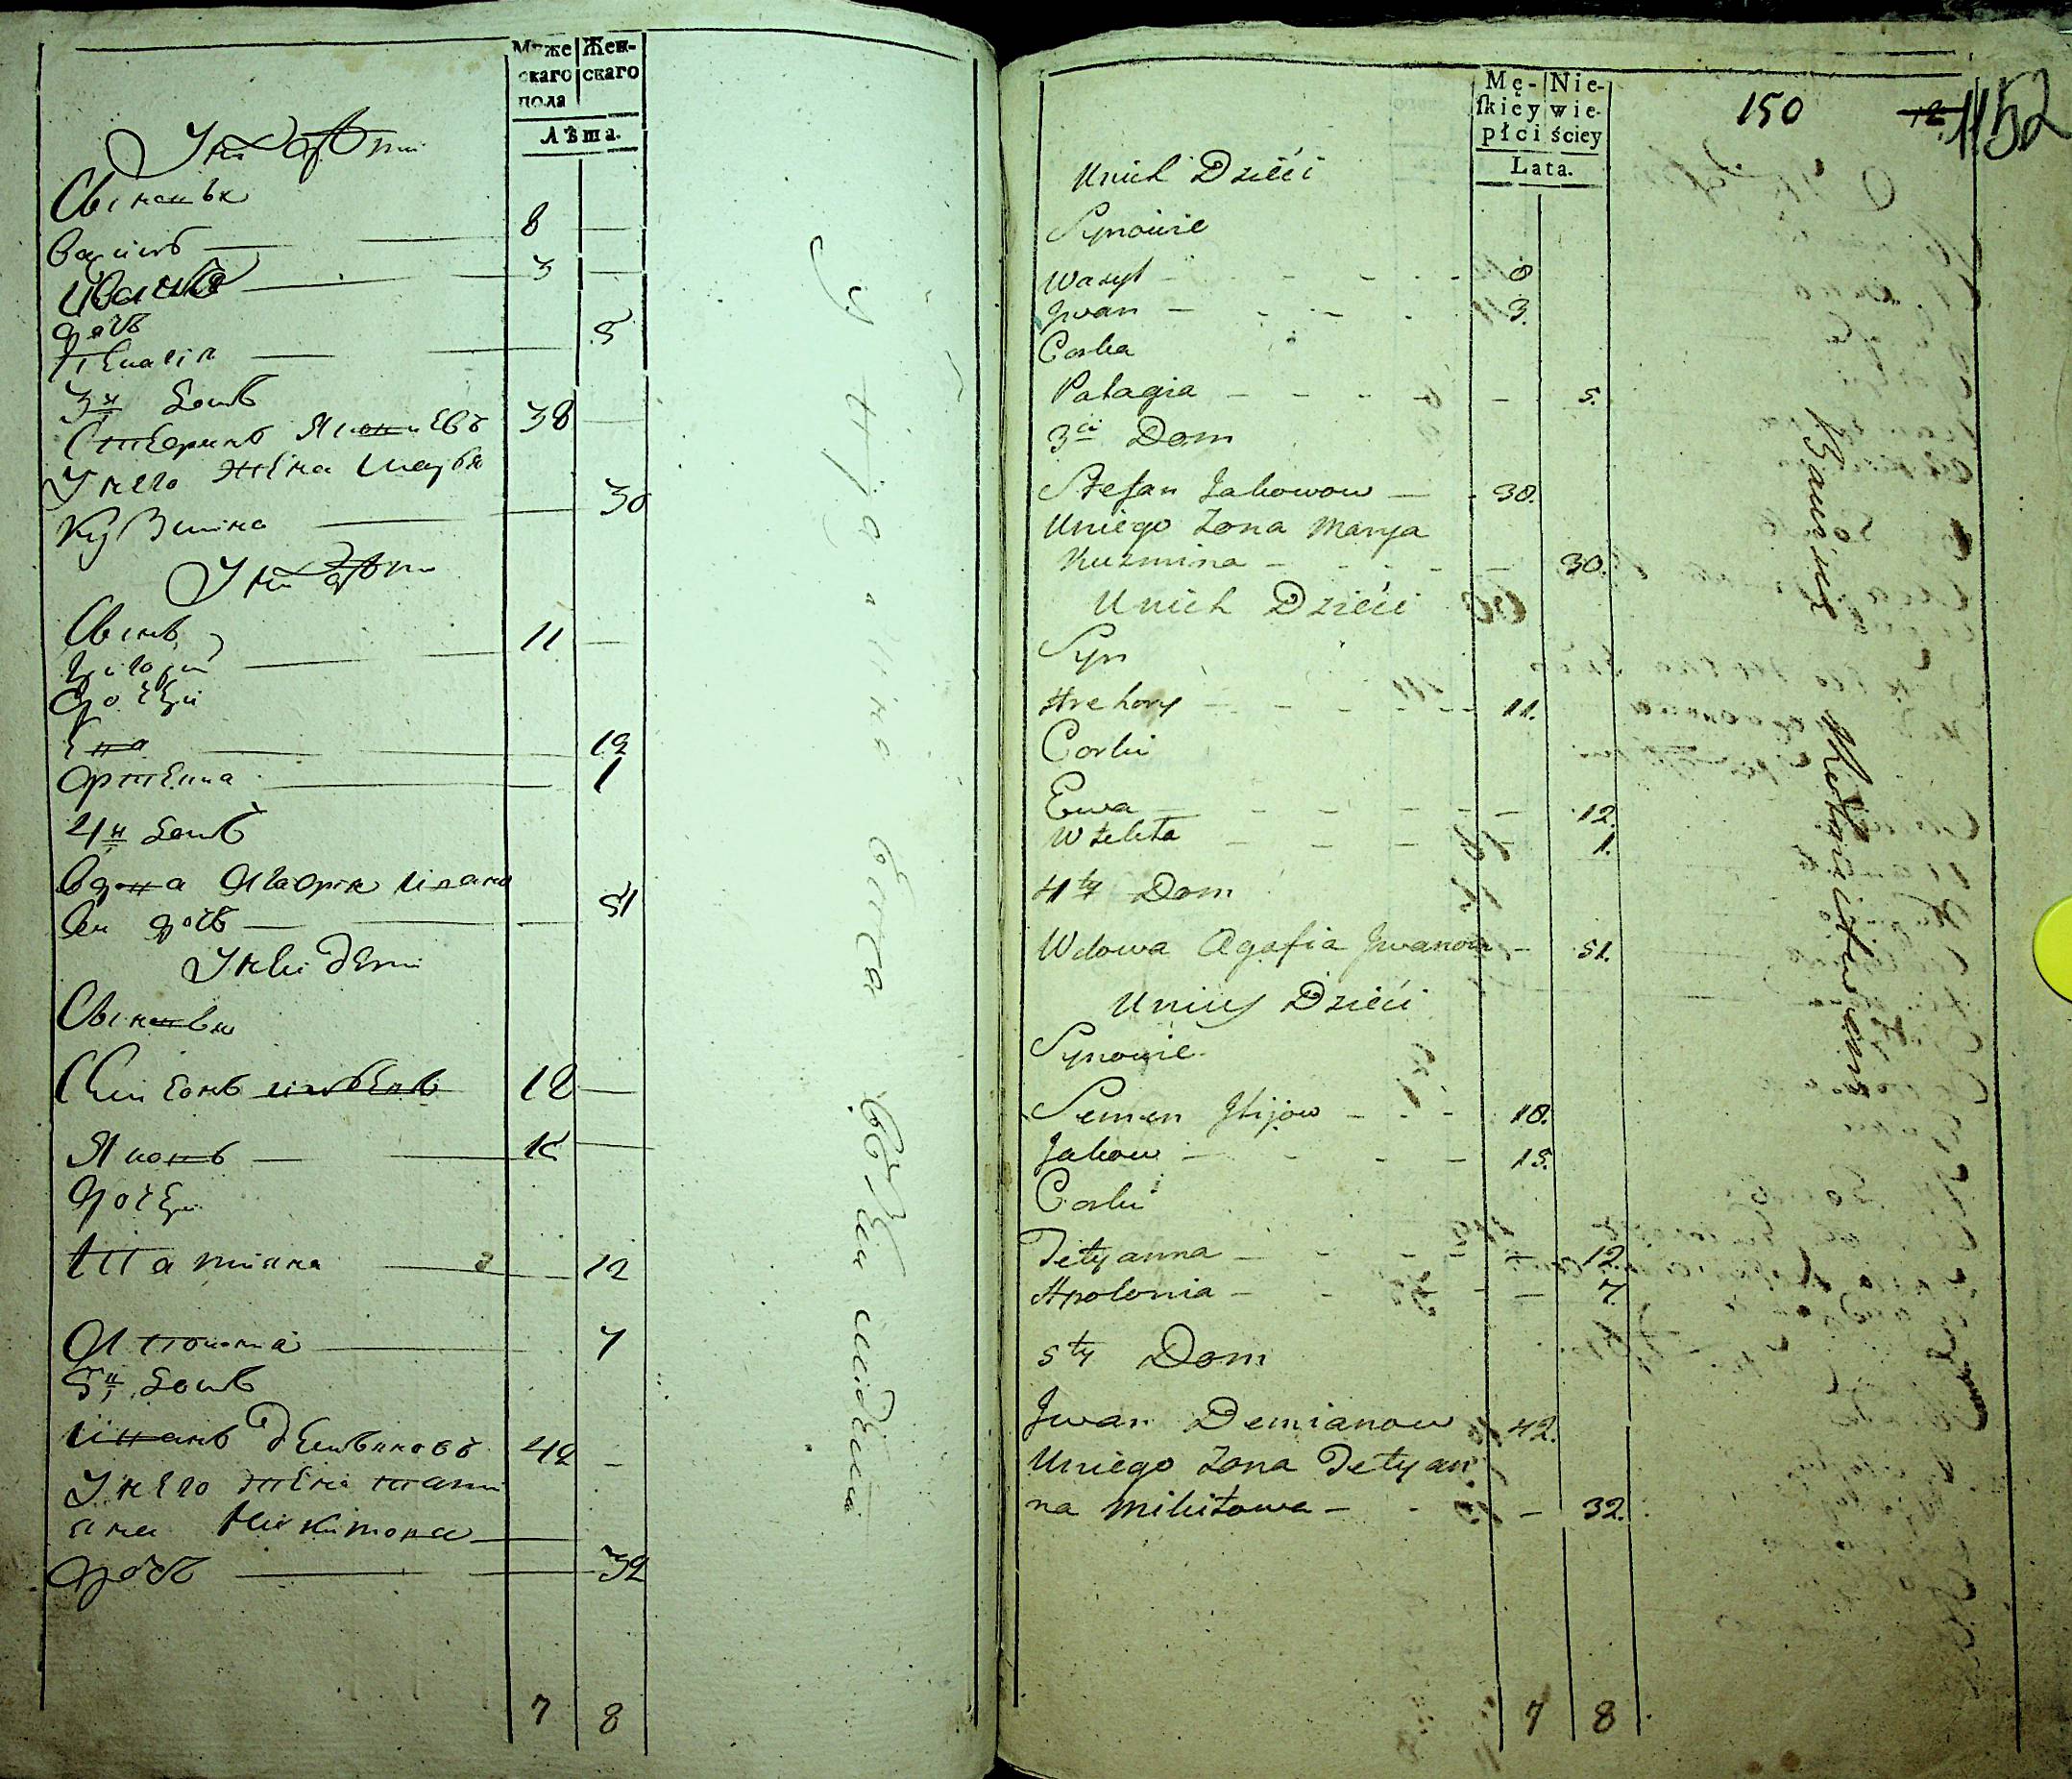 Муже Жен-
скаго скаго
пола
Лѣта.
У нихъ дѣти
Сыновья
Василь 8
Иванъ 3
дочь
Пелагія 5
3й домъ
Стефанъ Яковлевъ 38
У него жена Марья
Кузмина 30
У нихъ дѣти
Сынъ
Григорій 11
дочери
Ева 12
4й домъ
Вдова Агафія Ивано
ва дочь 51
У неи дѣти
Сыновья
Симеонъ 18
Яковъ 15
дочери
Татіяна 12
Аполонія 7
5й домъ
Иванъ Демьяновъ 42
У него жена Тати
яна Никитова
дочь 32
7 8
Mę- Nie-
skiey wie-
płci ściey
Lata.
150
152
Unich Dzieći
Synowie
Wasyl 8
Jwan 3.
Corka
Pałagia 5.
3ci Dom
Stefan Jakowow 38.
Uniego Zona Marya
Kuzmina 30.
Unich Dzieći
Syn
Hrehory 11.
Corki
Ewa 12.
1.
4ty Dom
Wdowa Agafia Jwanow 51.
Uniey Dzieći
Synowie
Semen Jlijow 18.
Jakow 15.
Corki
Tetyanna 12.
Apolonia 7.
5ty Dom
Jwan Demianow 42.
Uniego Zona Tetyan
na Mikitowa 32.
7 8